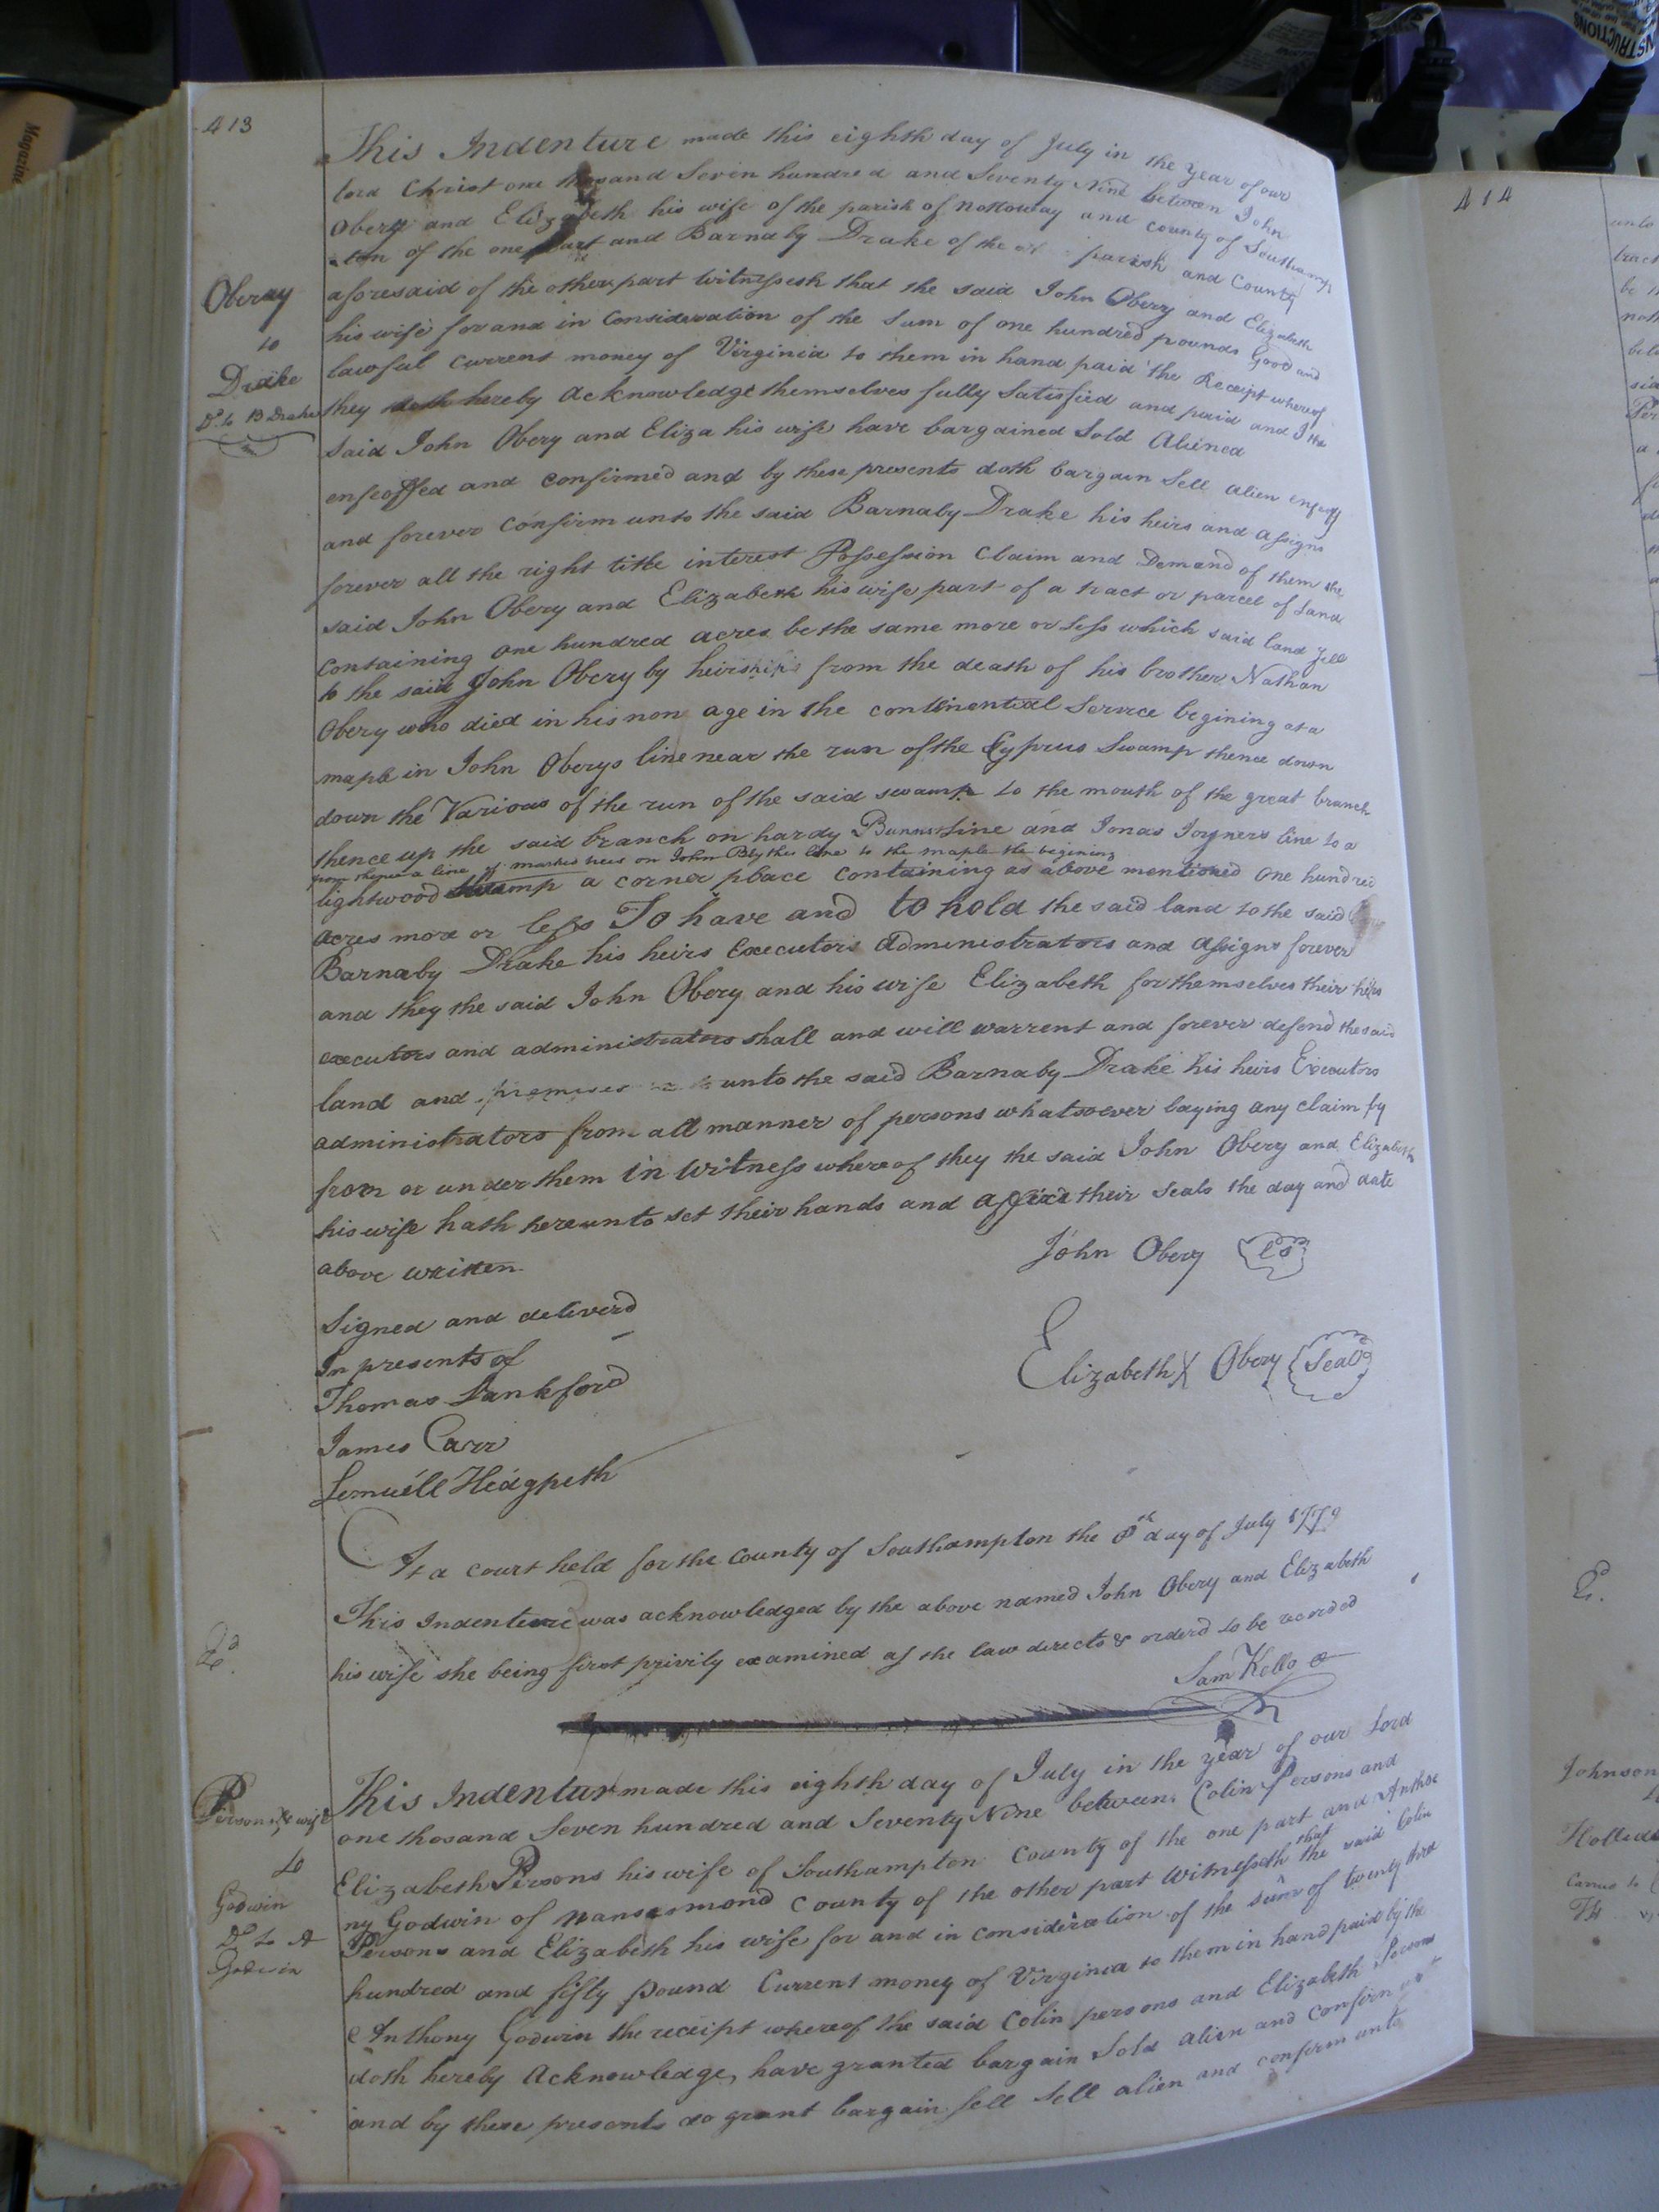 413
This Indenture made this eighth day of July in the year of our
lord Christ one thosand Seven hundred and Seventy Nine between John
Obery and Elizabeth his wife of the parish of nottoway and county of Southamp
ton of the one part and Barnaby Drake of the parish and County
Oberay
to
Drake
Dd. to B Drake
aforesaid of the other part Witnesseth that the said John Obery and Elizabeth
his wife for and in Consideration of the Sum of one hundred pounds Good and
lawful current money of Virginia to them in hand paid the Receipt whereof
they doth hereby acknowledge themselves fully Satisfied and paid and the
said John Obery and Eliza his wife have bargained Sold Aliened
enfeoffed and confirmed and by these presents doth bargain Sell alien enfeoff
and forever confirm unto the said Barnaby Drake his heirs and assigns
forever all the right title interest Possession Claim and Demand of them the
said John Obery and Elizabeth his wife part of a tract or parcel of Land
containing one hundred acres be the same more or less which said land fell
to the said John Obery by heirships from the death of his brother Nathan
Obery who died in his non age in the continential Service begining at a
maple in John Oberys line near the run of the Cyprus Swamp thence down
down the Various of the run of the said swamp to the mouth of the great branch
thence up the said branch on hardy line and Jonas Joyners line to a
from thence a line of marked trees on John Blythes line to the maple the begining
lightwood a corner place containing as above mentioned one hundred
acres more or less To have and to hold the said land to the said
Barnaby Drake his heirs Executors Administrators and assigns forever
and they the said John Obery and his wife Elizabeth for themselves their heirs
executors and administrators shall and will warrent and forever defend the said
land and premises unto the said Barnaby Drake his heirs Executors
administrators from all manner of persons whatsoever laying any claim by
from or under them in witness whereof they the said John Obery and Elizabeth
his wife hath hereunto set their hands and affixd their Seals the day and date
above written
John Obery LS
Signed and deliverd
In presents of
Elizabeth X Obery Seal
Thomas Lankford
James Carr
Lemuell Hedgpeth
At a court held for the County of Southampton the 8th day of July 1779
This Indenture was acknowledged by the above named John Obery and Elizabeth
his wife she being first privily examined as the law directs & orderd to be recorded
Sam Kello
Persons & wife
to
Godwin
Dd to A
Godwin
This Indentur made this eighth day of July in the year of our Lord
one thosand Seven hundred and Seventy Nine between Colin Persons and
Elizabeth Persons his wife of Southampton County of the one part and Antho
ny Godwin of nansemond County of the other part Witnesseth that the said Colin
Persons and Elizabeth his wife for and in consideration of the sum of twenty three
hundred and fifty pound Current money of Virginia to them in hand paid by the
Anthony Godwin the receipt whereof the said Colin persons and Elizabeth Persons
doth hereby Acknowledge, have granted bargain Sold alien and confirm
and by these presents do grant bargain sell Sell alien and confirm unto
414
unto
tract
Johnson
to
INSTRUCTIONS
Magazine